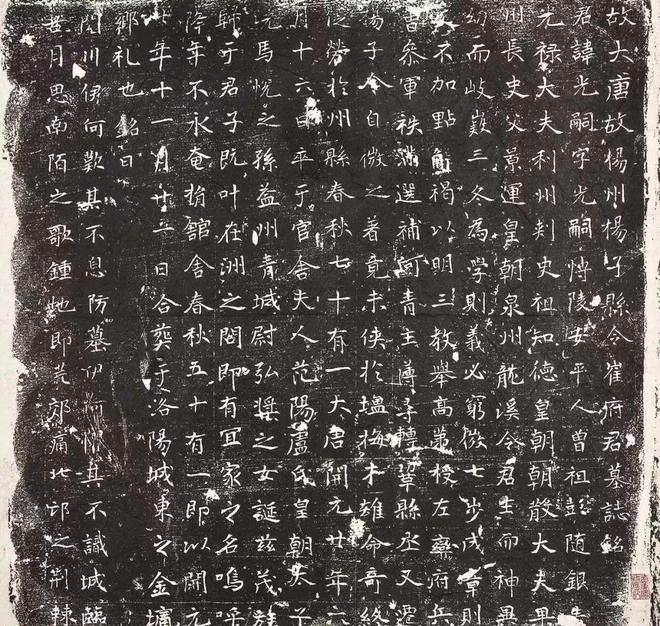 故大唐故楊州楊子縣令崔府君墓誌銘
君諱光嗣字光嗣博陵安平人曾祖彭随銀青
光禄大夫利州刾史祖知德皇朝朝散大夫果
州長史父景運皇朝泉州龍溪令君生而神異
幼而岐嶷三冬為學則義必窮微七步成章則
文不加點解褐以明三教舉高第授左府兵
曹參軍袟滿選補青主尋轉鞏縣丞又遷
楊子令自微之著竟未俠於塩梅才雄命奇終
從勞於州縣春秋七十有一大唐開元廿年六
月十六日卒于官舍夫人范陽盧氏皇朝太子
洗馬悅之孫益州青城尉弘獎之女誕茲茂族
歸于君子既叶在洲之閤即有宜家之名嗚呼
降年不永奄捐舘舍春秋五十有一即以開元
廿年十一月廿日合葬于洛陽城東之金墉
鄉礼也銘曰
閱川伊何歎其不息防墓伊何其不識城臨
月思南陌之歌鍾地即荒郊痛北邙之荆棘